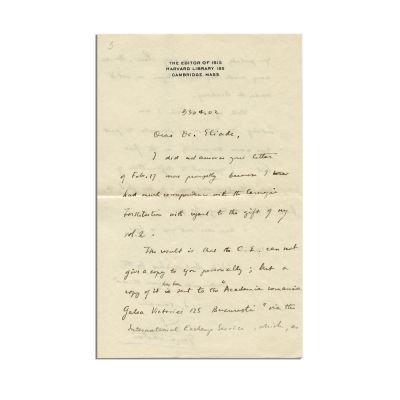 5
THE EDITOR OF ISIS
HARVARD LIBRARY 185
CAMBRIDGE, MASS.
330402
Dear Dr. Eliade,
I did not answer your letter
of Feb. 17 more promptly because I have
had much correspondence with the Carnegie
Institution with regard to the gift of my
vol. 2.
The result is that the C.I. can not
give a copy to you personally; but a
copy of it has been sent to the "Academia romania
Galea Victoriei 125 Bucuresti" via the
International Exchange Service, which, as